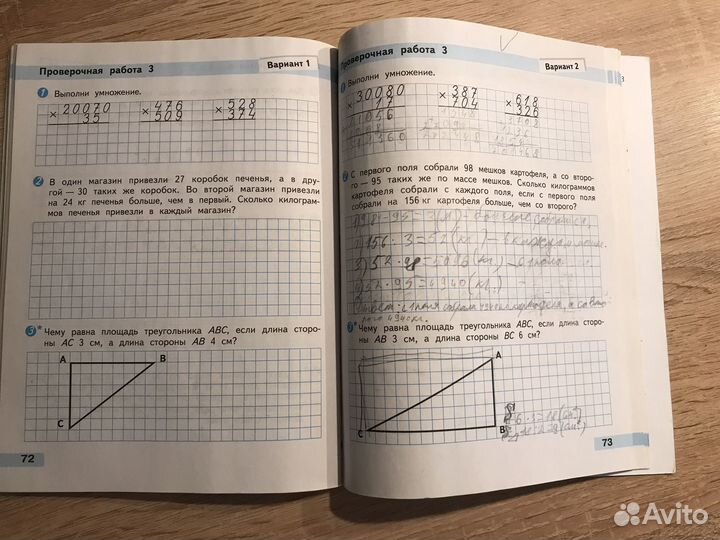 Проверочная работа 3
Вариант 1
1 Выполни умножение.
× 20070 × 476 × 528
35 509 374
2 В один магазин привезли 27 коробок печенья, а в дру-
гой — 30 таких же коробок. Во второй магазин привезли
на 24 кг печенья больше, чем в первый. Сколько килограм-
мов печенья привезли в каждый магазин?
3* Чему равна площадь треугольника ABC, если длина сторо-
ны AC 3 см, а длина стороны AB 4 см?
A B
C
72
Проверочная работа 3
Вариант 2
Выполни умножение.
× 30080 × 387 × 618
17 704 326
С первого поля собрали 98 мешков картофеля, а со второ-
го — 95 таких же по массе мешков. Сколько килограммов
картофеля собрали с каждого поля, если с первого поля
собрали на 156 кг картофеля больше, чем со второго?
1) 98-95=3(м)
2) 156:3=52(кг)
3) 52·98=5096(кг)
52·95=4940(кг)
3* Чему равна площадь треугольника ABC, если длина сторо-
ны AB 3 см, а длина стороны BC 6 см?
A
C B
6·3=18(см²)
73
Avito